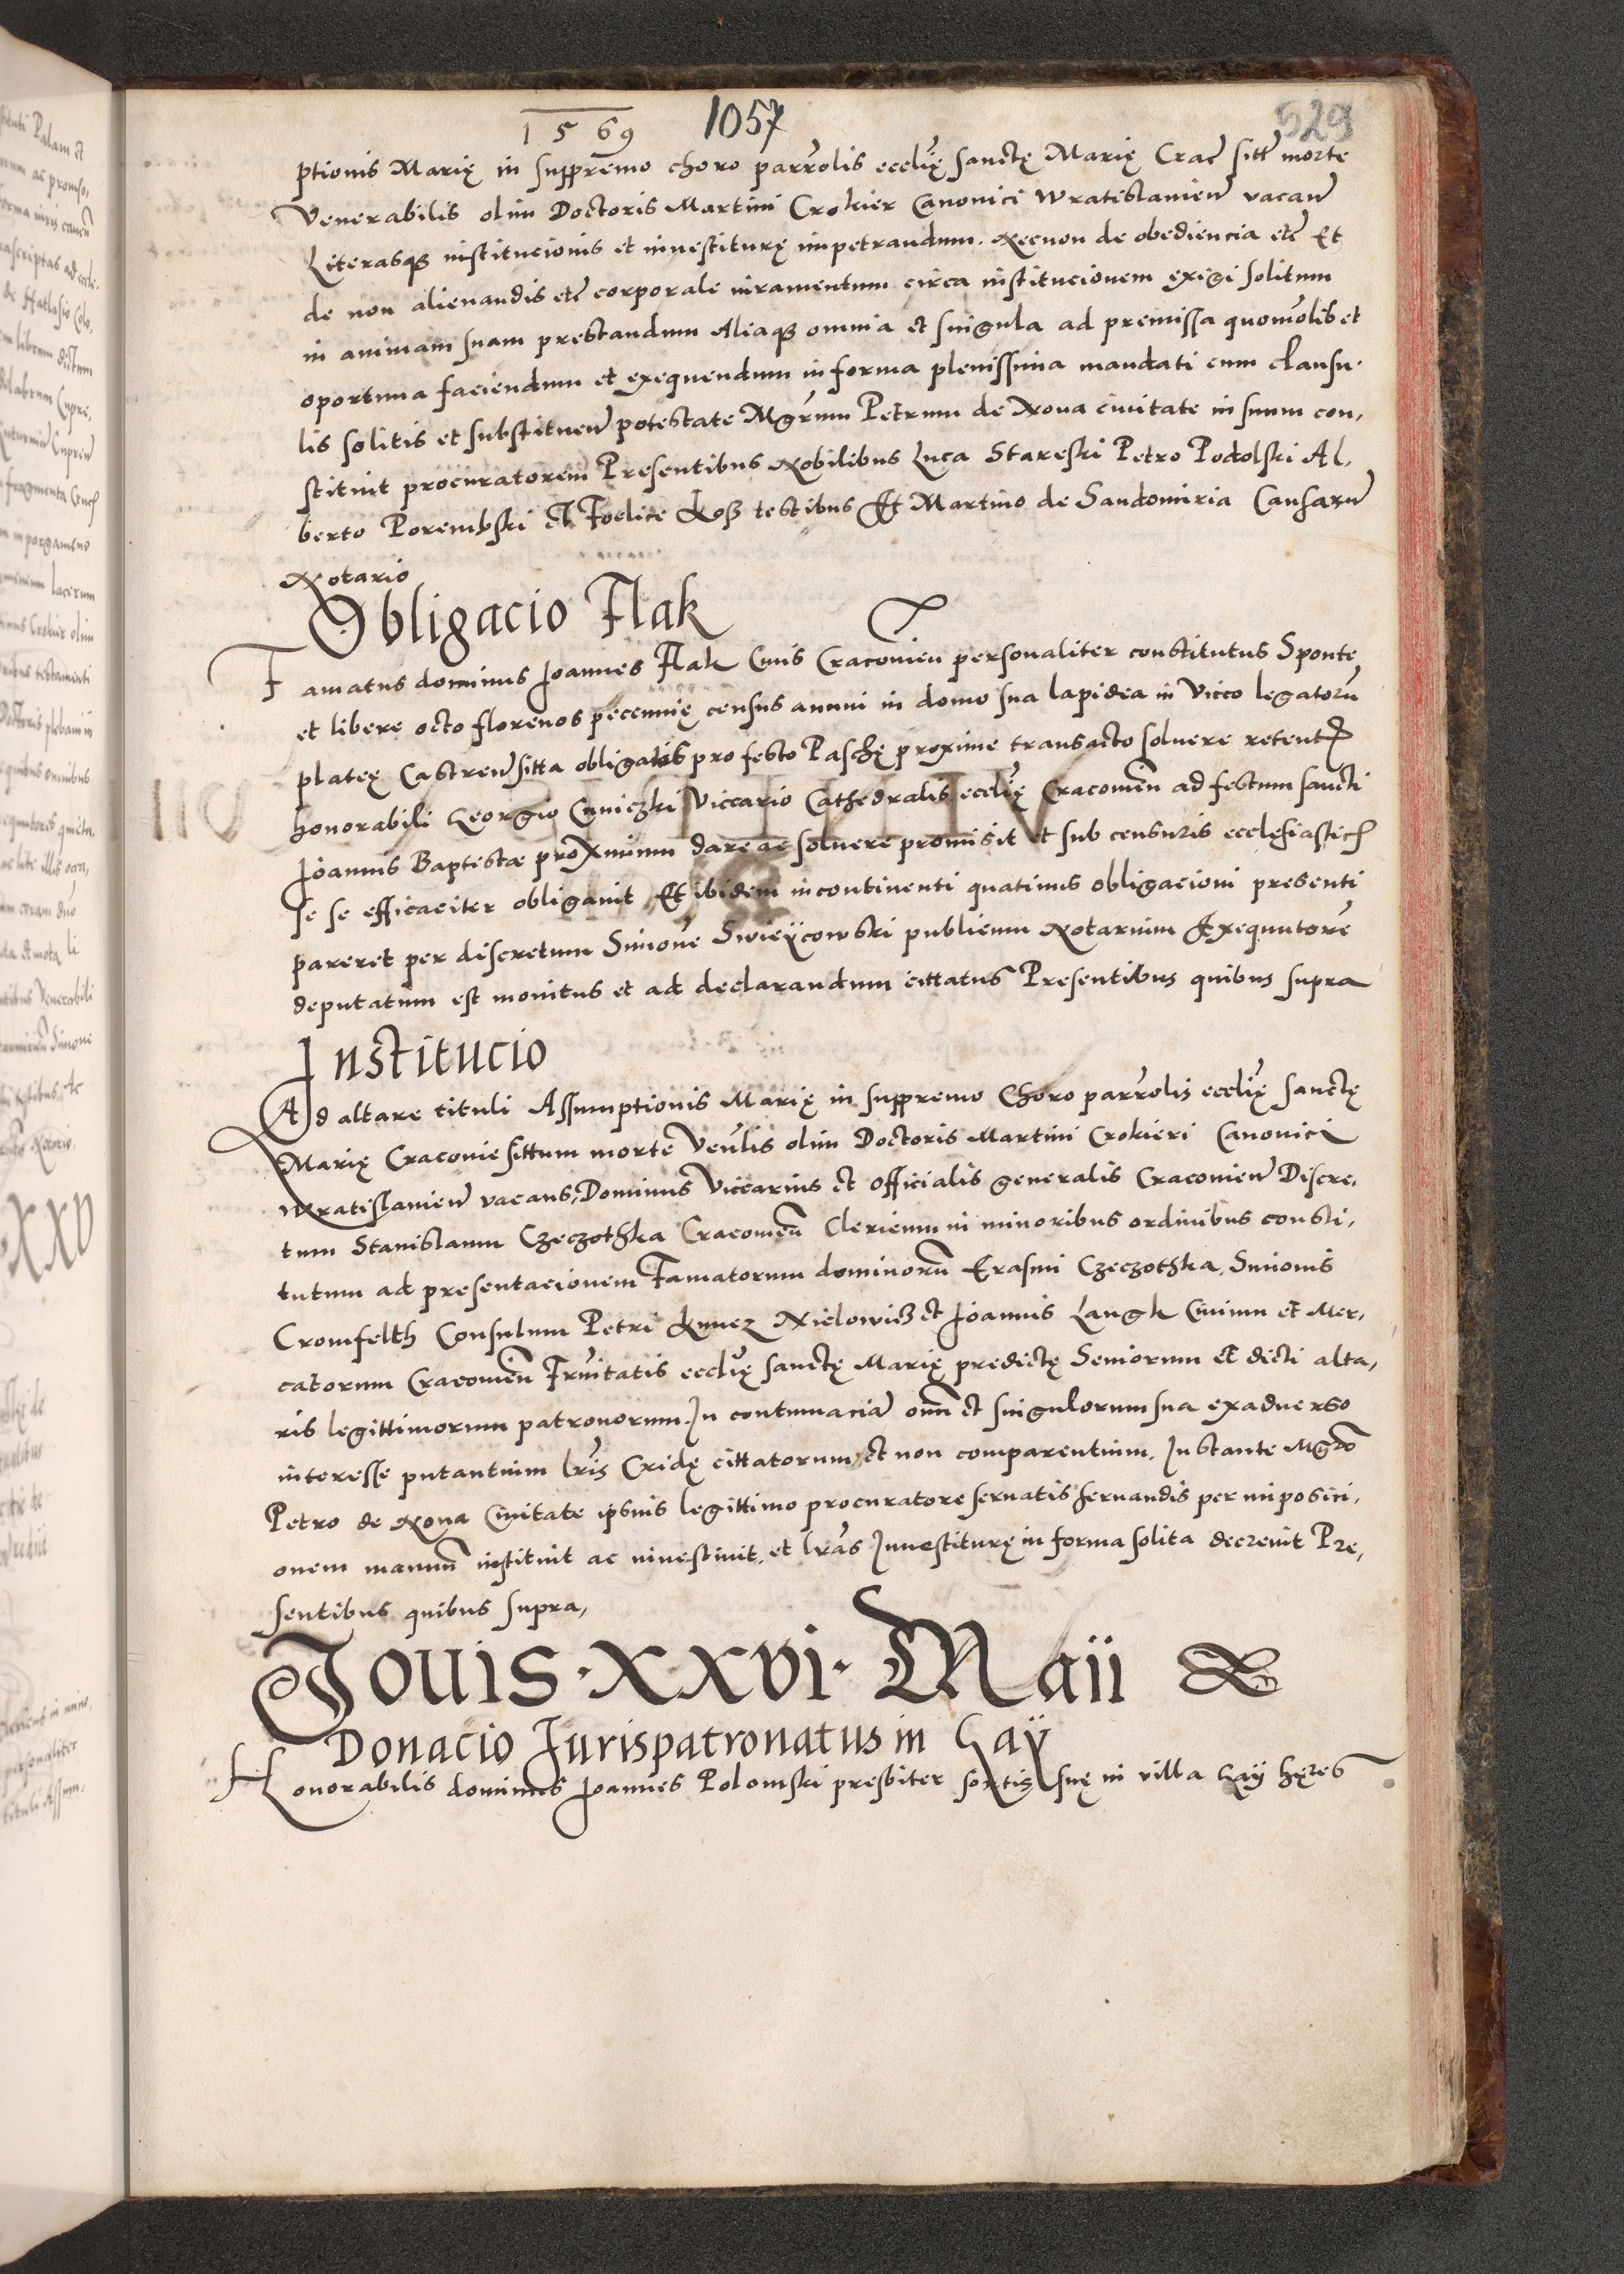 1569 1057 529
ptionis Marię in suppremo choro parrolis ecclię sanctę Marię Crac sitt morte
Venerabilis olim Doctoris Martini Crokier Canonici Wratislavien vacan
Literasque institucionis et investiturę impetrandum. Necnon de obediencia etc Et
de non alienandis etc corporale iuramentum circa institucionem exigi solitum
in animam suam prestandum Aliaque omnia et singula ad premissa quomolibet
oportuna faciendum et exequendum in forma plenissima mandati cum clausu-
lis solitis et substituen potestate Mgrum Petrum de Nova civitate in suum con,
stituit procuratorem Presentibus Nobilibus Luca Stareski Petro Podolski Al,
berto Porembski Et Foelice Koß testibus Et Martino de Sandomiria Causarum
Notario
Obligacio Flak
Famatus dominus Joannes Flak Civis Cracovien personaliter constitutus Sponte
et libere octo florenos pecunię census annui in domo sua lapidea in Vicco legatorum
plateę Castren sitta obligatis pro festo Paschę proxime transacto solvere retent
honorabili Georgio Cuniczki Viccario Cathedralis ecclię Cracovien ad festum sancti
Joannis Baptistae proximum dare ac solvere promisit et sub censuris ecclesiastic
se se efficaciter obligavit Et ibidem incontinenti quatinus obligacioni presenti
pareret per discretum Simone Swieÿcowski publicum Notarium Exequutore
deputatum est monitus et ad declarandum cittatus Presentibus quibus supra
Institucio
Ad altare tituli Assumptionis Marię in suppremo Choro parrolis ecclię sanctę
Marię Cracovie sittum morte Venlis olim Doctoris Martini Crokieri Canonici
Wratislavien vacans, Dominus Viccarius et officialis generalis Cracovien Discre,
tum Stanislaum Czeczothka Cracovien Clericum in minoribus ordinibus consti,
tutum ad presentacionem Famatorum dominorum Erasmi Czeczothka, Simonis
Cromfelth Consulum Petri Kuncz Nielowiß et Joannis Langk Civium et Mer,
catorum Cracovien Frnitatis ecclię sanctę Marię predictę Seniorum Et dicti alta,
ris legittimorum patronorum. In contumaciam omn et singulorum sua exadverso
interesse putantium lris Cridę cittatorum, et non comparentium. Instante Mgro
Petro de Nova Civitate ipsius legittimo procuratore servatis servandis per imposici,
onem manum instituit ac investivit, et lras Investiturę in forma solita decrevit Pre,
sentibus quibus supra,
Jovis · XXVI · Maii
Donacio Jurispatronatus in Gaÿ
Honorabilis dominus Joannes Polomski presbiter sortis suę in villa Gaÿ hęres